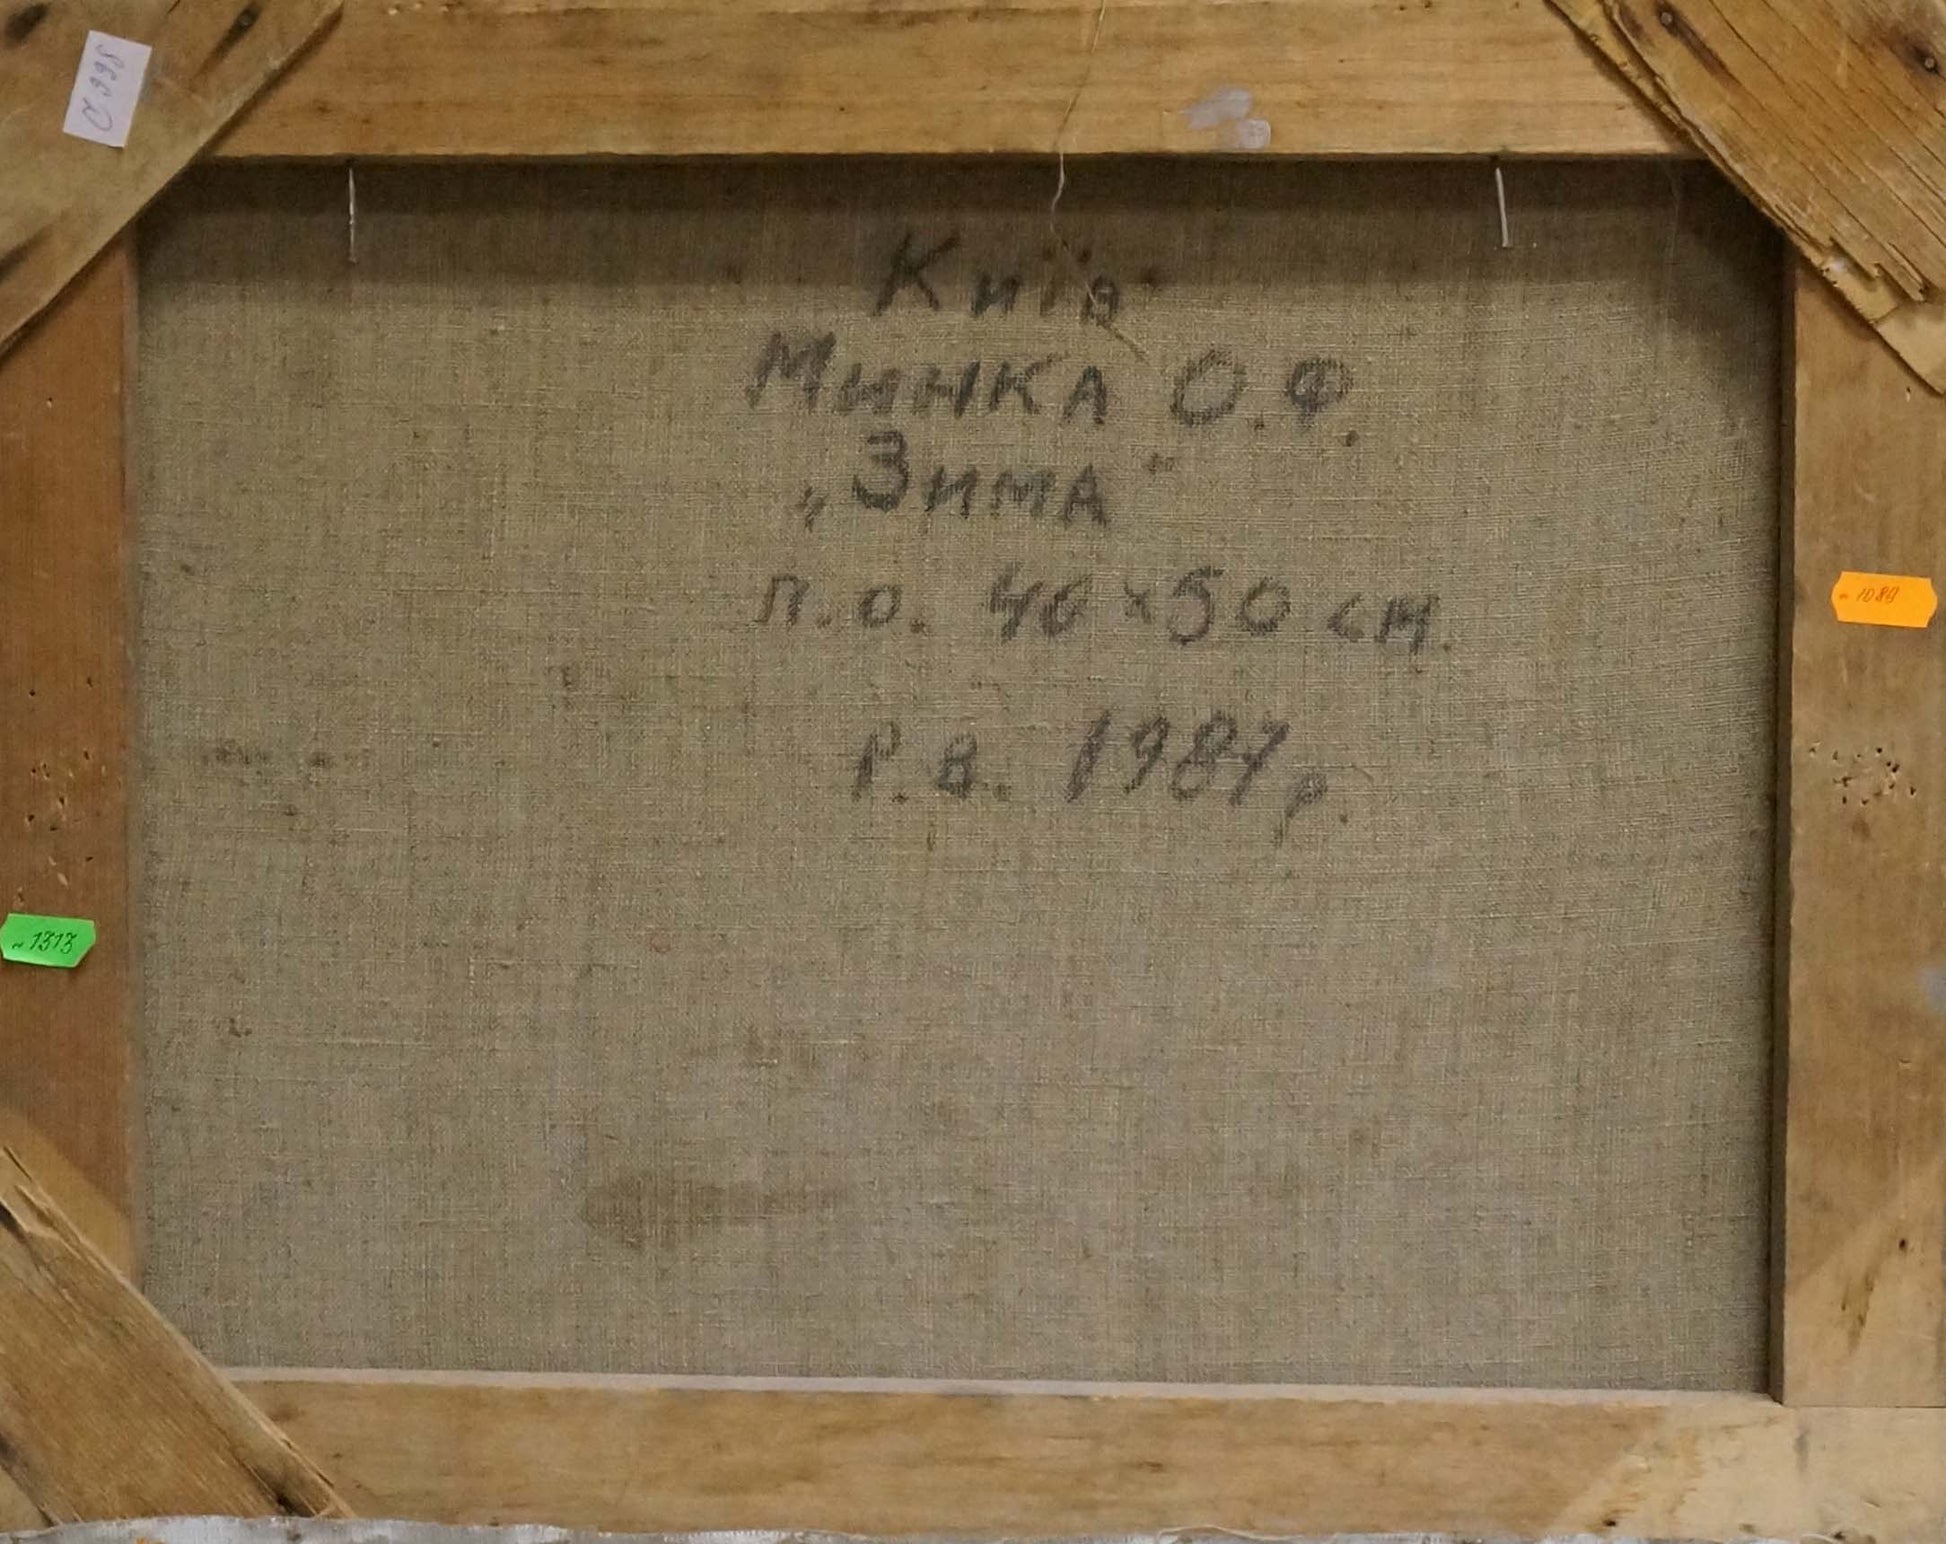 Київ
Минка О.Ф.
„Зима"
п.о. 40×50 см.
Р.В. 1987р.
1089
1313